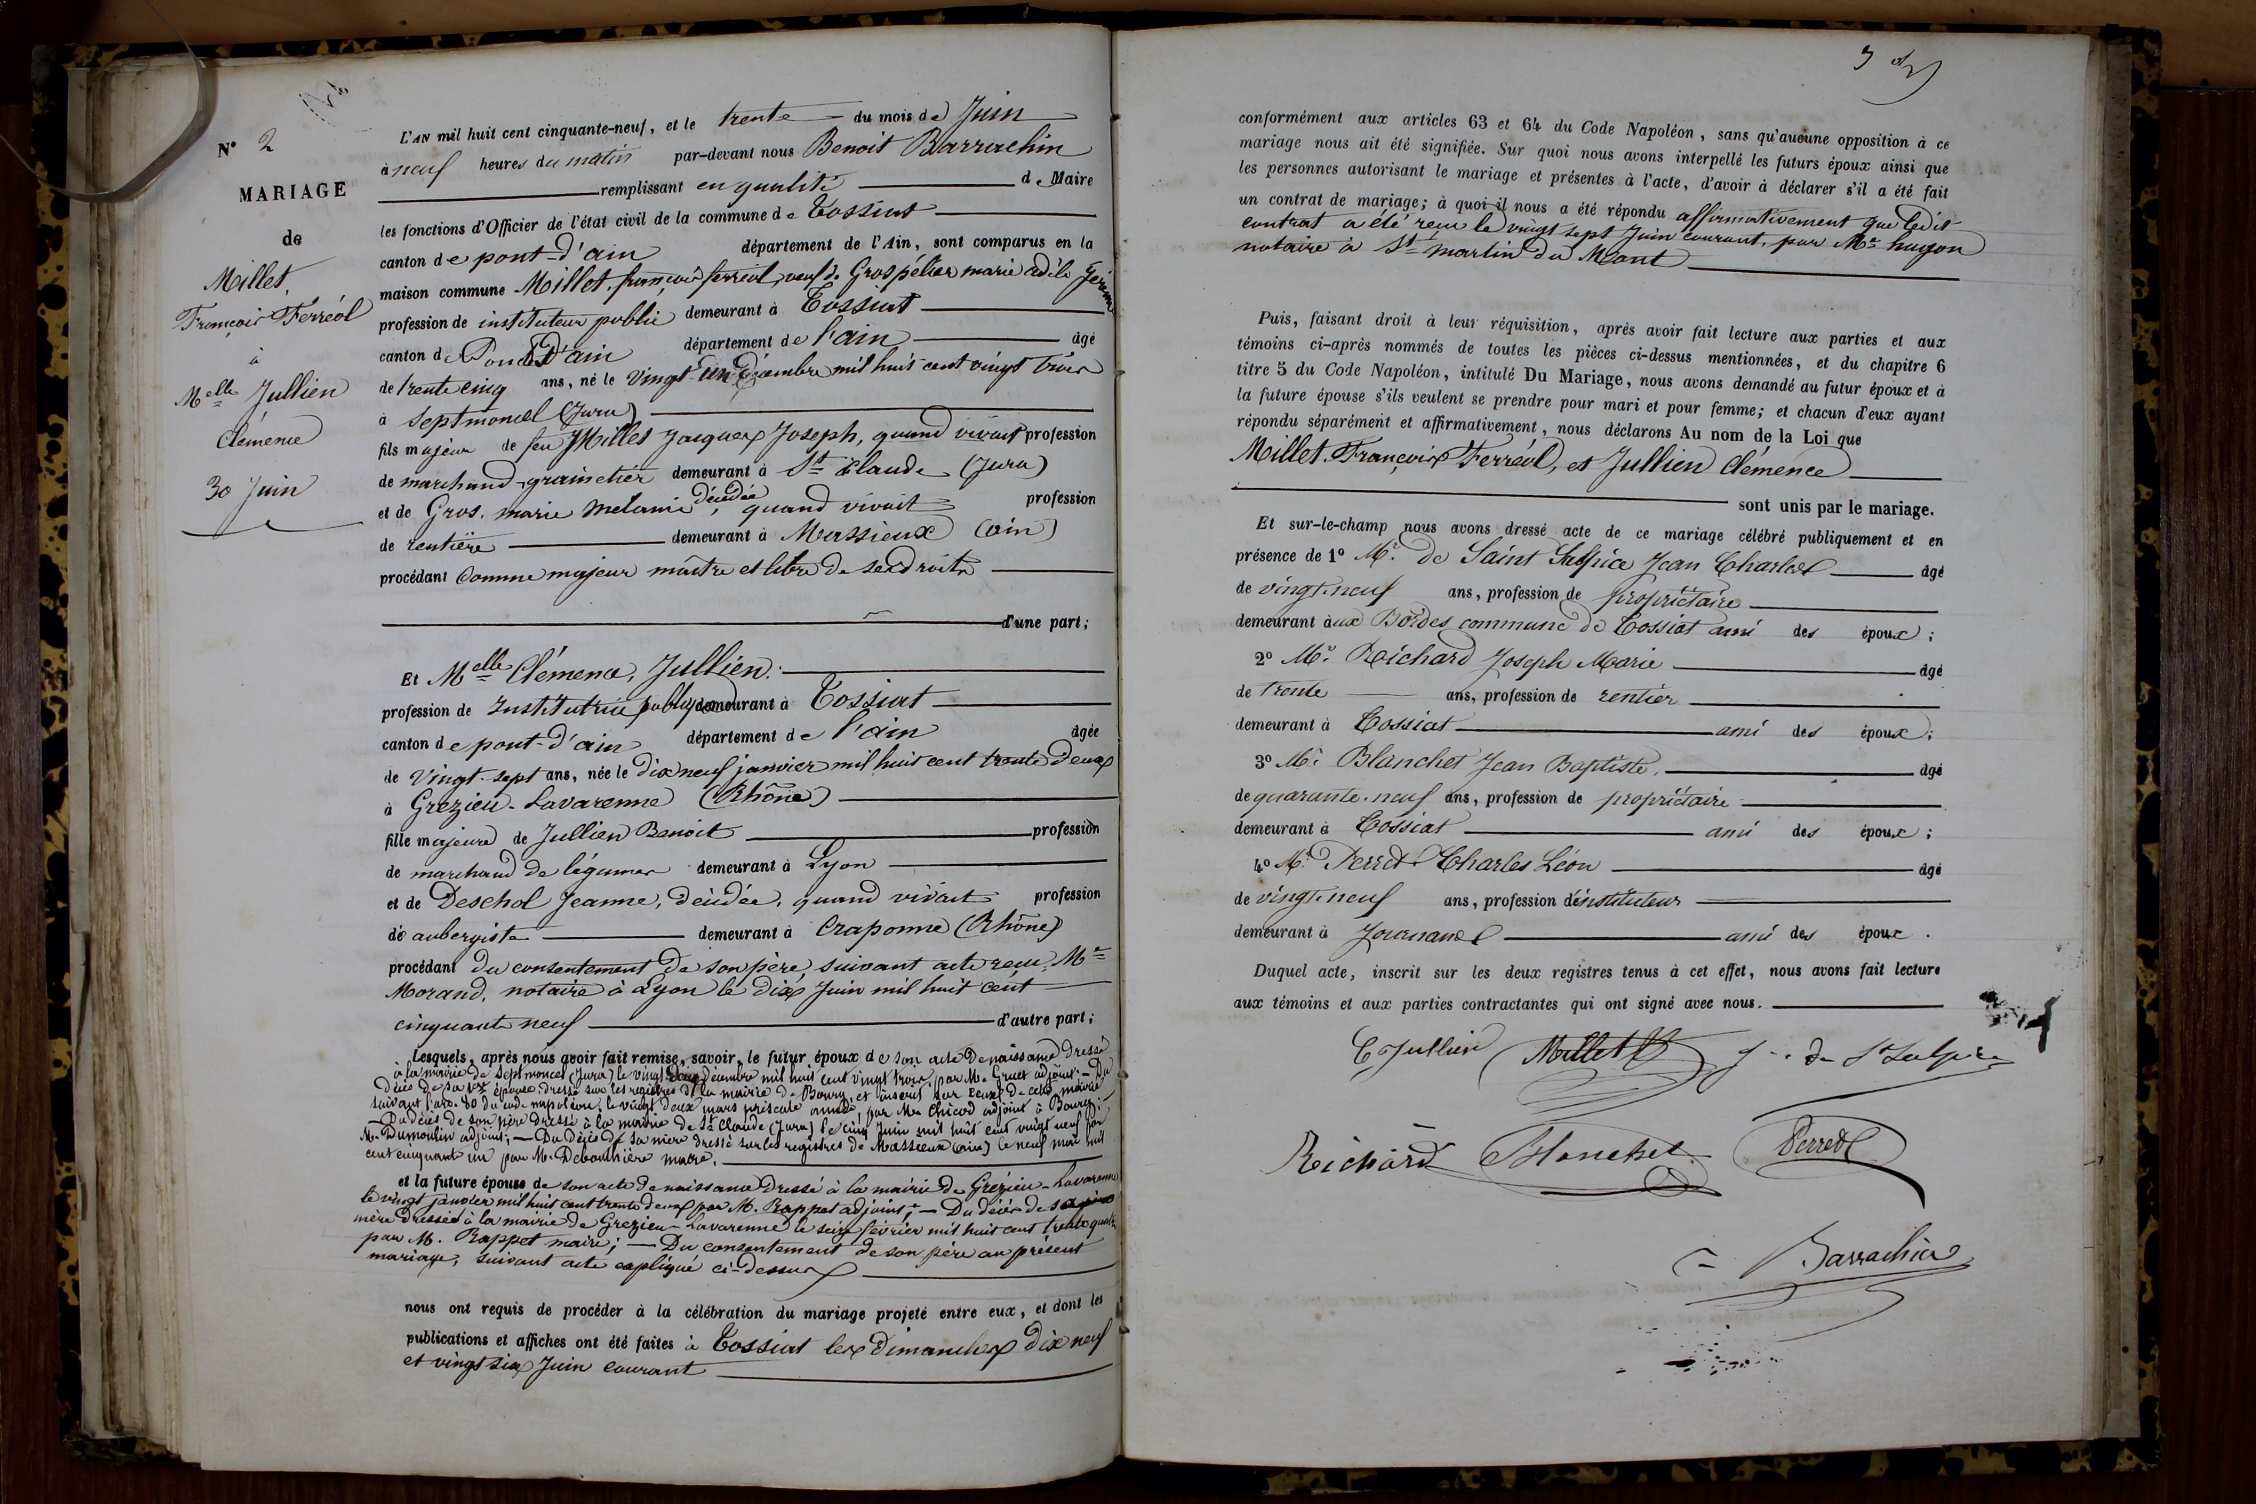 N° 2
MARIAGE
de
Millet,
François Ferréol
à
Melle Jullien
Clémence
30 Juin
L'AN mil huit cent cinquante-neuf, et le trente du mois de Juin
à neuf heures du matin par-devant nous Benoit Barrachin
remplissant en qualité de Maire
les fonctions d'Officier de l'état civil de la commune de Tossiat
canton de pont-d'ain département de l'Ain, sont comparus en la
maison commune Millet, françois ferréol, veuf de Grospélier marie adèle
profession de instituteur public demeurant à Tossiat
canton de Pont d'ain département de l'ain âgé
de trente cinq ans, né le Vingt un décembre mil huit cent vingt trois
à Septmoncel (Jura)
fils majeur de feu Millet Jacques Joseph, quand vivait profession
de marchand-grainetier demeurant à St Claude (Jura)
et de Gros. marie mélanie décédée, quand vivait profession
de rentière demeurant à Massieux (ain)
procédant comme majeur maître et libre de ses droits
d'une part;
Et Melle Clémence, Jullien.
profession de Institutrice publique demeurant à Tossiat
canton de pont-d'ain département de l'ain âgée
de Vingt-sept ans, née le dix neuf janvier mil huit cent trente deux
à Grézieu-Lavarenne (Rhône)
fille majeure de Jullien Benoit profession
de marchand de légumes demeurant à Lyon
et de Deschol Jeanne, décédée, quand vivait profession
de aubergiste demeurant à Craponne (Rhône)
procédant du consentement de son père, suivant acte reçu Me
Morand, notaire à Lyon le dix Juin mil huit cent
cinquante neuf d'autre part;
Lesquels, après nous avoir fait remise, savoir, le futur époux de son acte de naissance dressé
à la mairie de Septmoncel (Jura) le vingt deux décembre mil huit cent vingt trois, par M. Gruet adjoint; – Du
décès de sa 1ère épouse, dressé sur les registres de la mairie de Bourg, et inscrit sur ceux de cette mairie
suivant l'art. 80 du code napoléon, le vingt deux mars présente année, par Mr Chicod adjoint à Bourg;
– Du décès de son père dressé à la mairie de St Claude (Jura) le cinq Juin mil huit cent vingt neuf par
M. Dumoulin adjoint; – Du décès de sa mère dressé sur les registres de Massieux (ain) le neuf mai mil
cent cinquante un par M. maire.
et la future épouse de son acte de naissance dressé à la mairie de Grézieu-Lavarenne
le vingt janvier mil huit cent trente deux par M. Rappet adjoint; – Du décès de sa
mère dressée à la mairie de Grezieu-Lavarenne le seize février mil huit cent trente quatre
par M. Rappet maire; – Du consentement de son père au présent
mariage, suivant acte expliqué ci-dessus
nous ont requis de procéder à la célébration du mariage projeté entre eux, et dont les
publications et affiches ont été faites à Tossiat les dimanches dix neuf
et vingt six Juin courant
3
conformément aux articles 63 et 64 du Code Napoléon, sans qu'aucune opposition à ce
mariage nous ait été signifiée. Sur quoi nous avons interpellé les futurs époux ainsi que
les personnes autorisant le mariage et présentes à l'acte, d'avoir à déclarer s'il a été fait
un contrat de mariage; à quoi il nous a été répondu affirmativement que ledit
contrat a été reçu le vingt sept Juin courant, par Me hugon
notaire à St martin du Mont
Puis, faisant droit à leur réquisition, après avoir fait lecture aux parties et aux
témoins ci-après nommés de toutes les pièces ci-dessus mentionnées, et du chapitre 6
titre 5 du Code Napoléon, intitulé Du Mariage, nous avons demandé au futur époux et à
la future épouse s'ils veulent se prendre pour mari et pour femme; et chacun d'eux ayant
répondu séparément et affirmativement, nous déclarons Au nom de la Loi que
Millet. François Ferréol, et Jullien Clémence
sont unis par le mariage.
Et sur-le-champ nous avons dressé acte de ce mariage célébré publiquement et en
présence de 1° Mr. de Saint Sulpice Jean Charles âgé
de vingt-neuf ans, profession de propriétaire
demeurant aux Bordes commune de Tossiat ami des époux;
2° Mr. Réichard Joseph Marie âgé
de trente ans, profession de rentier
demeurant à Tossiat ami des époux;
3° Mr. Blanchet Jean Baptiste. âgé
de quarante-neuf ans, profession de propriétaire
demeurant à Tossiat ami des époux;
4° Mr. Perret Charles Léon âgé
de vingt-neuf ans, profession d'instituteur
demeurant à Journans ami des époux.
Duquel acte, inscrit sur les deux registres tenus à cet effet, nous avons fait lecture
aux témoins et aux parties contractantes qui ont signé avec nous.
C. Jullien Millet J. de St Sulpice
Réichard Blanchet Perret
Barrachin